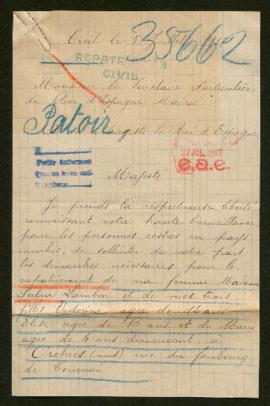 Creil le
35662
REPATR
CIVIL
Monsieur le Secrétaire Particulier
du Roi d'Espagne Madrid
Patoir
sa Majesté le Roi d'Espagne
27 JUL. 1917
e.a.e.
Majesté
Je prends la respectueuse liberté
connaissant votre haute bienveillance
pour les personnes restées en pays
envahis, de solliciter de votre part
les démarches nécessaires pour le
rapatriement de ma femme Madame
Lambin et de mes trois
filles agée de ans
Elise, agée de 10 ans et de Marie
agée de 4 ans demeurant à
Orchies (nord) rue du faubourg
de Tournai